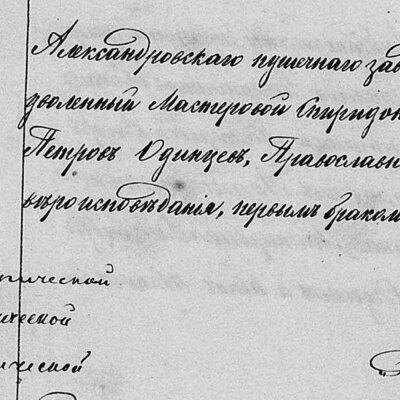 Александровскаго пушечнаго зав
дволенный Мастеровой Спиридон
Петровъ Одинцевъ, Православн
вѣроисповѣданія, первымъ бракомъ
ической
ической
ической